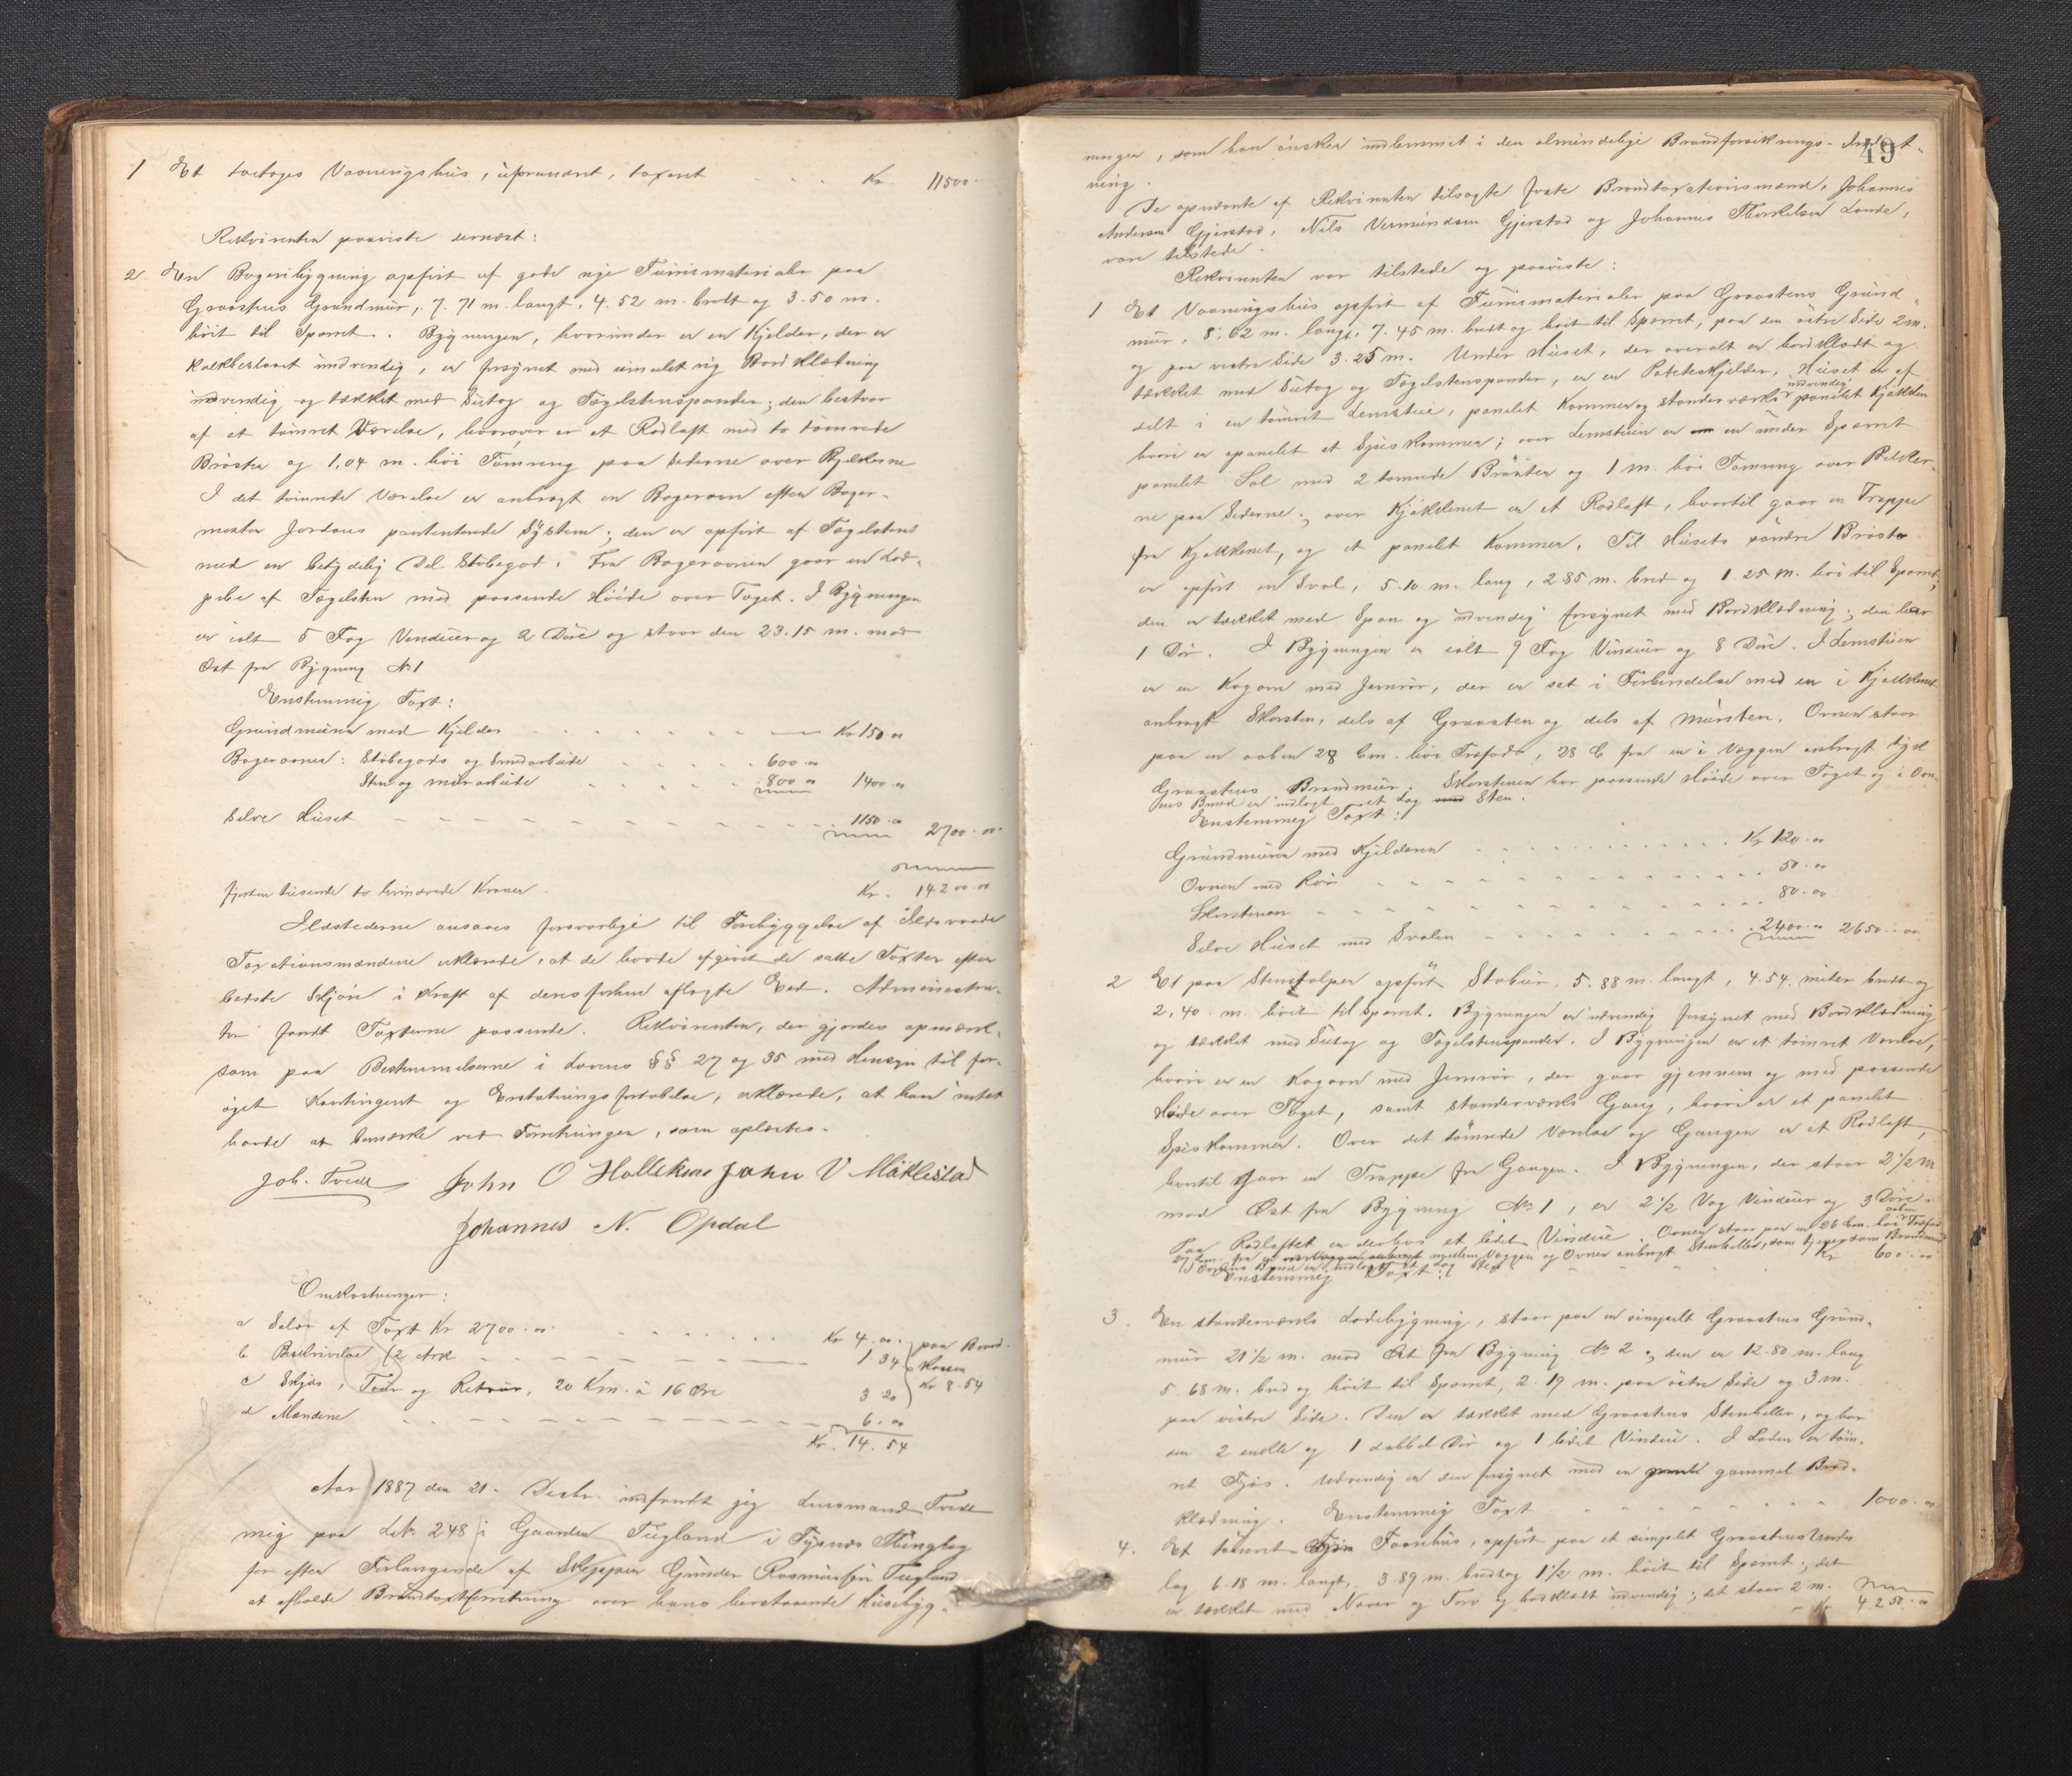 1 Et toetages Vaaningshus, uforandret, taxeret . . . Kr. 11500.
Rekvirenten paaviste dernæst:
2 En Bageribygning opført af gode nye Furumaterialer paa
Graastens Grundmur, 7.71 m. langt, 4.52 m. bredt og 3.50 m.
høit til Sparret. Bygningen, hvorunder er en Kjelder, der er
kalkbeslaaet indvendig, er forsynet med simulet rig Bordklædning
indvendig og tækket med Sutag og Tagelstenspander; den bestaar
af et tømret Værelse, hvorover er et Rodloft med to tømrede
Brøster og 1,04 m. høi Tømring paa Siderne over Bjelkerne
I det tømrede Værelse er anbragt en Bagerovn efter Bager-
mester Jordans pantenterede System; den er opført af Tagelsten
med en betydelig Del Støbegods. Fra Bagerovnen gaar en Lod-
pibe af Tagelsten med passende Høide over Taget. I Bygningen
er ialt 5 Fag Vinduer og 2 Døre og staar den 23.15 m. mod
Øst fra Bygning № 1
Enstemmig Taxt:
Grundmuren med Kjelder - - - - Kr 150.00
Bagerovnen: Støbegods og Smedarbeide . . . 600.00
Sten og murarbeide . . . 800.00 1400.00
Selve Huset - - - - 1150.00 2700.00
fjorten tusende to hundrede Kroner. Kr. 14200.00
Ildstederne ansaaes forsvarlige til Forebyggelse af Ildsvaade
Taxationsmændene erklærede, at de havde afgivet de satte Taxter efter
bedste Skjøn i Kraft af deres forhen aflagte Eed. Administra-
tor fandt Taxterne passende. Rekvirenten, der gjordes opmærk-
som paa Bestemmelserne i Lovens §§ 27 og 35 med Hensyn til for-
øget Kontingent og Erstatningsfortabelse, erklærede, at han intet
havde at bemærke ved Forretningen, som oplæstes.
Joh. Trede John O Hallekens John V Mäklestad
Johannes N. Opdal
Omkostninger:
a Salær af Taxt Kr 2700.00 . . . Kr 4.00 paa Brand-
b Beskrivelse (2 Ark - - - 1.34 Kassen
c Skyds, Tour og Retour, 20 Km. à 16 Øre 3.20 Kr 8.54
d Mændene - - - - 6.00
Kr. 14.54
Aar 1887 den 21. Decbr. indfandt jeg Lensmand Trede
mig paa L№ 248 i Gaarden Tugland i Tysnæs Thinglag
for efter Forlangende af Skipper Gunder Rasmussen Tugland
at afholde Brandtaxtforretning over hans herstaaende Husebyg-
49
ninger, som han ønsker indlemmet i den almindelige Brandforsikrings-Indret-
ning.
De opnævnte af Rekvirenten tilsagte faste Brandtaxationsmænd, Johannes
Andersen Gjerstad, Nils Vermundsen Gjerstad og Johannes Thorkelsen Lande,
vare tilstede.
Rekvirenten var tilstede og paaviste:
1 Et Vaaningshus opført af Furumaterialer paa Graastens Grund-
mur, 8.62 m. langt, 7.45 m. bredt og høit til Sparret, paa den østre Side 2 m.
og paa vestre Side 3.25 m. Under Huset, der overalt er bordklædt og
tækket med Sutag og Tagelstenspander, er en Poteteskjelder, Huset er af
delt i en tømret Lemstue, panelet Kammer og standerværks indvendig panelet Kjøkken
hvori er panelet et Spiskammer; over Lemstuen er en under Sparret
panelet Sal med 2 tømrede Brøster og 1 m. høi Tømring over Bielker-
ne paa Siderne; over Kjøkkenet er et Rodloft, hvortil gaar en Trappe
fra Kjøkkenet, og et panelet Kammer. Til Husets søndre Brøst
er opført en Sval, 5.10 m. lang, 2.85 m. bred og 1.25 m. høi til Sparret;
den er tækket med Spon og udvendig forsynet med Bordklædning; den har
1 Dør. I Bygningen er ialt 9 Fag Vinduer og 8 Døre. I Lemstuen
er en Kogovn med Jernrør, der er sat i Forbindelse med en i Kjøkkenet
anbragt Skorsten, dels af Graasten og dels af Mursten. Ovnen staar
paa en aaben 28 Cm. høi Træfod, 28 C fra en i Væggen anbragt digt
Graastens Brandmur. Skorstenen har passende Høide over Taget og i Ovn
ens Bund er indlagt et Lag Sten.
Enstemmig Taxt:
Grundmuren med Kjelderen . . . Kr 120.00
Ovnen med Rør - - - 50.00
Skorstenen - - - 80.00
Selve Huset med Svalen - - - 2400.00 2650.00
2 Et paa Stenstolper opført Stabur, 5.88 m. langt, 4.54 meter bredt og
2,40 m. høit til Sparret. Bygningen er udvendig forsynet med Bordklædning
og tækket med Sutag og Tagelstenspander. I Bygningen er et tømret Værelse,
hvori er en Kogovn med Jernrør, der gaar gjennem og med passende
Høide over Taget, samt standerværks Gang, hvori er et panelet
Spiskammer. Over det tømrede Værelse og Gangen er et Rodloft,
hvortil gaar en Trappe fra Gangen. I Bygningen, der staar 2 1/2 m
mod Øst fra Bygning № 1, er 2 1/2 Fag Vinduer og 3 Døre.
Paa Rodloftet er derhos et lidet Vindue. Ovnen staar paa en aaben 26 Cm. høi Træfod
27 Cm. fra en mellem Væggen og Ovnen anbragt Stenhelle, som tjener som Brandmur
I Ovnens Bund er indlagt et Lag Sten
Enstemmig Taxt: - - - Kr 600.00
3. En standerværks Ladebygning, staar paa en simpelt Graastens Grund-
mur 21 1/2 m. mod Øst fra Bygning № 2; den er 12.80 m. lang
5.68 m. bred og høit til Sparret, 2.19 m. paa østre Side og 3 m.
paa vestre Side. Den er tækket med Graastens Stenheller, og har
den 2 enkle og 1 dobbel Dør og 1 lidet Vindue. I Laden er tøm-
ret Fjøs. Udvendig er den forsynet med en gammel Bord-
klædning. Enstemmig Taxt - - - 1000.00
4. Et tømret Faarehus, opført paa et simpelt Graastens
lag 6.18 m. langt, 3.89 m. bredt og 1 1/2 m. høit til Sparret; det
er tækket med Næver og Torv og bordklædt udvendig; det staar 2 m.
- Kr 4250.00